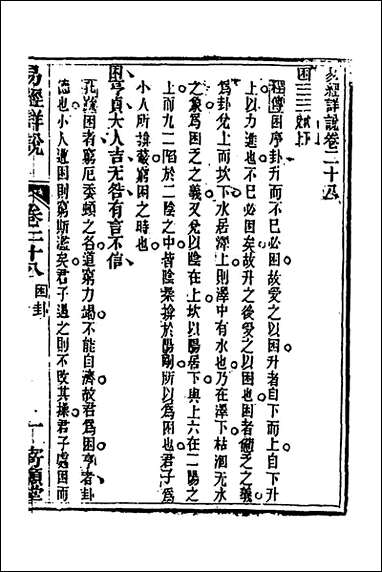 易經詳說卷二十八
困
程傳困序卦升而不已必困故受之以困升者自下而上自下升
上以力進也不已必困矣故升之後受之以困也困者憊乏之義
爲卦兌上而坎下水居澤上則澤中有水也乃在澤下枯涸无水
之象爲困乏之義又兌以陰在上坎以陽居下與上六在二陽之
上而九二陷於二陰之中皆陰柔揜於陽剛所以爲困也君子爲
小人所揜蔽窮困之時也
困亨貞大人吉无咎有言不信
孔疏困者窮厄委頓之名道窮力竭不能自濟故名爲困亨者卦
德也小人遭困則窮斯濫矣君子遇之則不改其操君子處困而
易經詳說
卷二十八
困卦
一
寄願堂